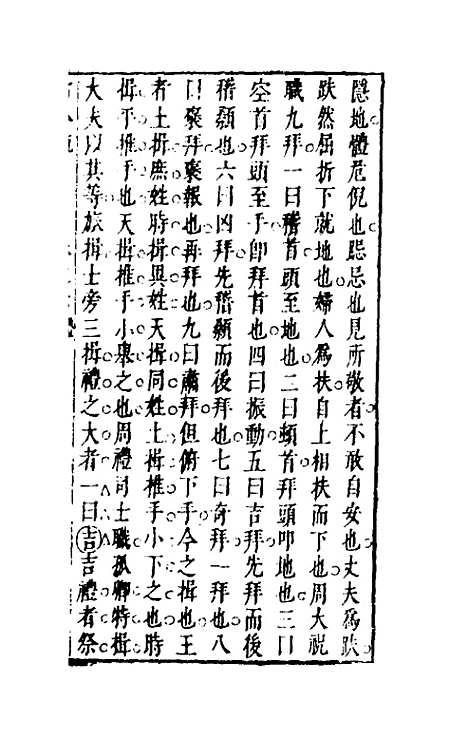 隱地體危倪也跽忌也見所敬者不敢自安也丈夫爲跌
跌然屈折下就地也婦人爲扶自上相扶而下也周大祝
職九拜一曰稽首頭至地也二曰頓首拜頭叩地也三曰
空首拜頭至手卽拜首也四曰振動五曰吉拜先拜而後
稽顙也六曰凶拜先稽顙而後拜也七曰奇拜一拜也八
曰褒拜褒報也再拜也九曰肅拜但俯下手今之揖也王
者土揖庶姓時揖異姓天揖同姓土揖推手小下之也時
揖平推手也天揖推手小舉之也周禮司士職孤卿特揖
大夫以其等旅揖士旁三揖禮之大者一曰吉吉禮者祭